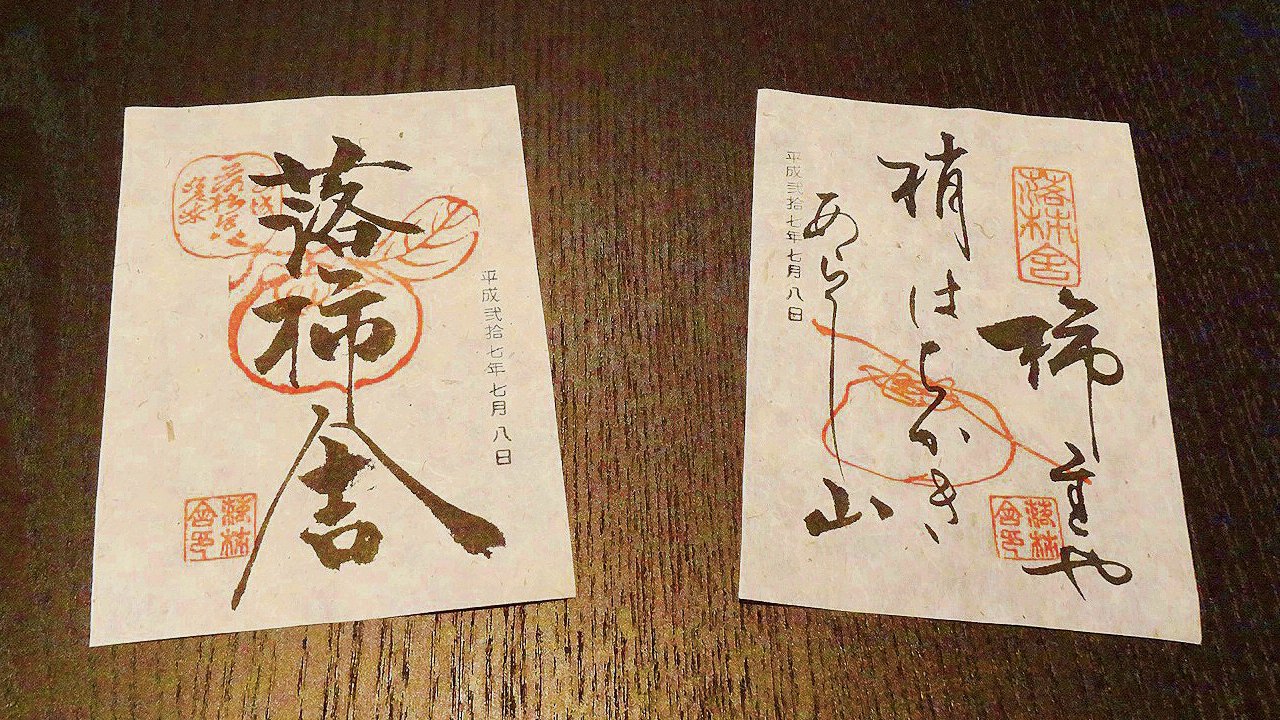 落柿舎
平成弐拾七年七月八日
落柿舎印
落柿舎
柿主や
梢はちかき
あらし山
平成弐拾七年七月八日
落柿舎印